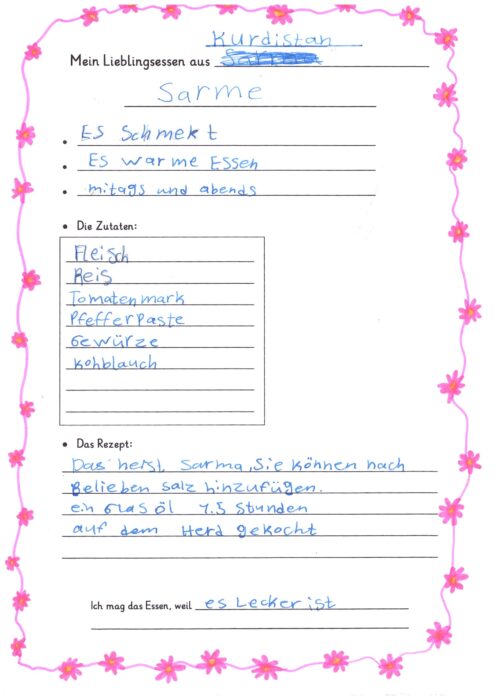 Kurdistan
Mein Lieblingsessen aus
Sarme
• ES Schmekt
• ES warme Essen
• mitags und abends
• Die Zutaten:
Fleisch
Reis
Tomatenmark
Pfefferpaste
Gewürze
Kohblauch
• Das Rezept:
Das heist Sarma, Sie können nach
Belieben salz hinzufügen.
ein Glas öl 1.5 Stunden
auf dem Herd gekocht
Ich mag das Essen, weil es Lecker ist